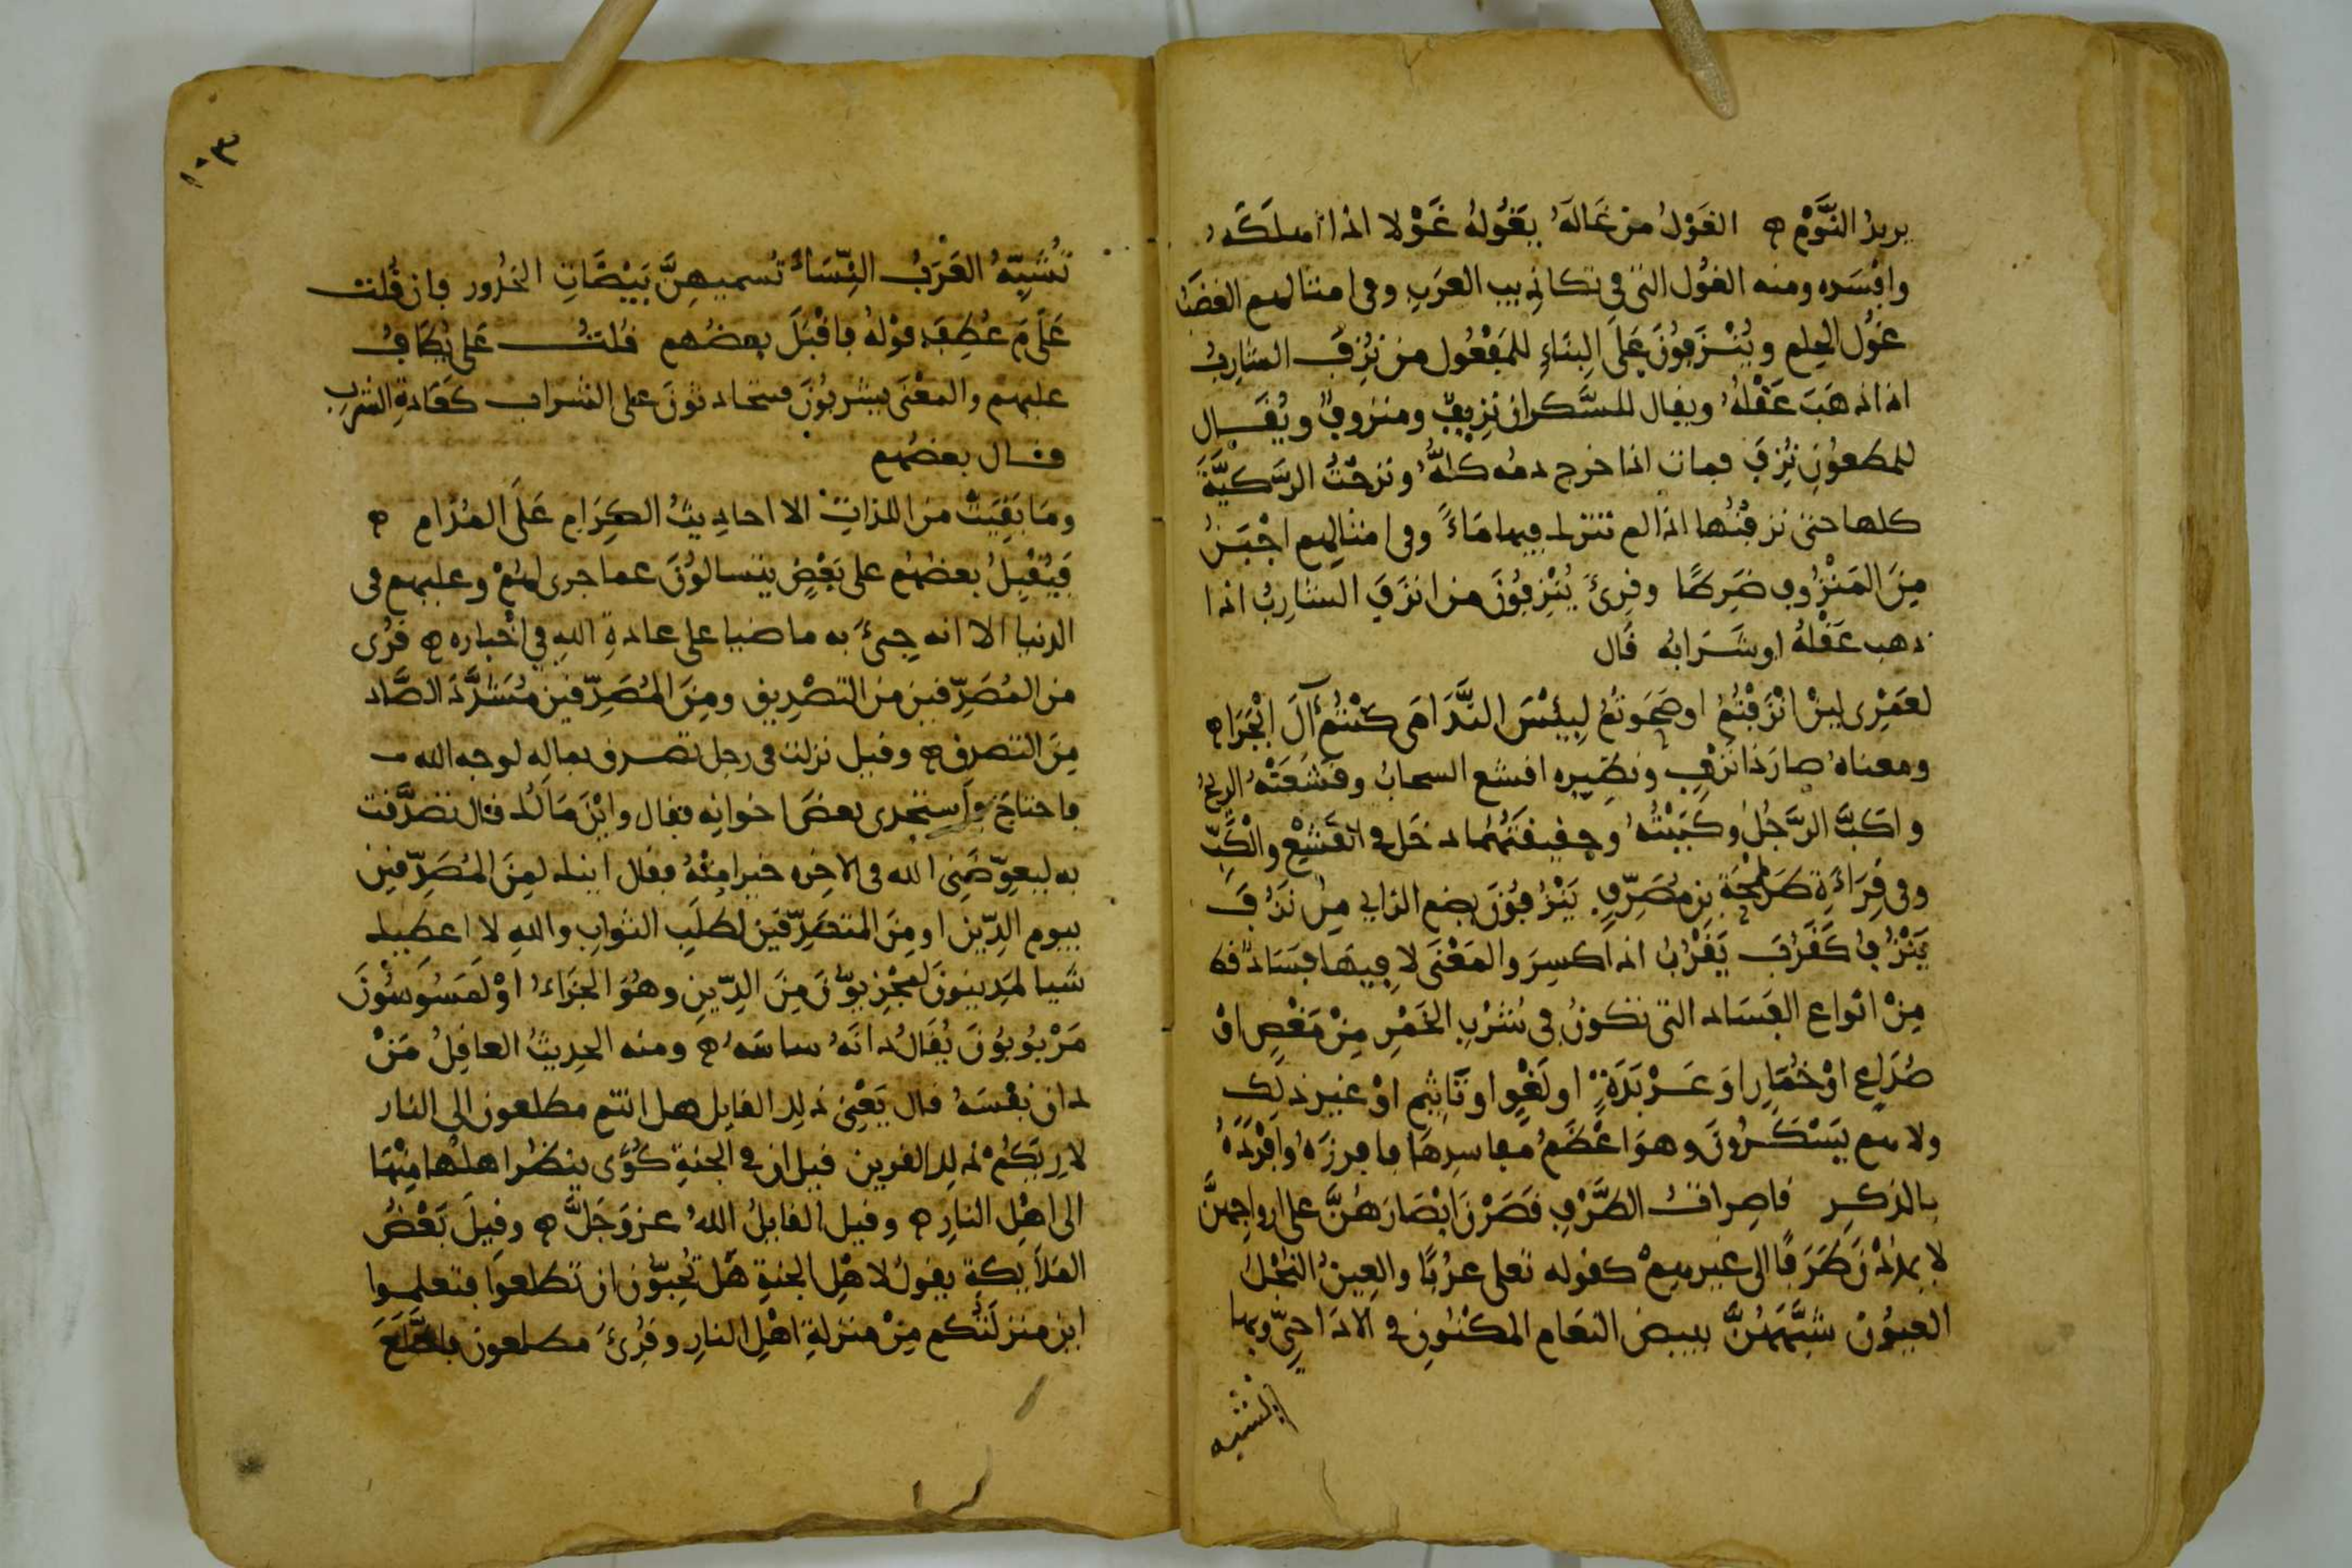 يريدُ النَّوْمَ ه الغَوْلُ من غَالهُ يَغُولهُ غَوْلا اذا اهلكَهُ
وافْسَده ومنه الغُول التى فى تكاذيب العَرَبِ وفى امثالهم الغضَبُ
غُوْل الحِلم ويُنْزَفُونَ عَلَى البِنَاءِ للمَفْعُول من نُزِفَ الشارِبُ
اذا ذهَبَ عَقْلهُ ويقال للسَّكران نزِيفٌ ومنزوفٌ ويُقَال
للمطعوُنِ نُزِفَ فمات اذا خرج دمه كلهُ ونزحْتُ الرَّكيَّةَ
كلها حتى نزفتُها اذا لم تترك فيها مَاءً وفى امثالهم اجْبَنُ
مِنَ المَنْزُوفِ ضَرِطًا وقرِئَ يُنْزِفُونَ من انزَفَ الشارِبُ اذا
ذهب عَقْلهُ او شَرَابُه قَال
لعَمْرِى لين انْزَفْتُمُ او صَحَوتمُ لبِئْسَ النَّدَامَى كنتُمُ آلَ ابْجَرَا ه
ومعناهُ صارَ ذا نَزْفٍ ونظِيره اقشع السحابُ وقشَعَتْهُ الريحُ
واكَبَّ الرَّجُلُ وكَبَبْتُهُ وحقيقَتُهُما دخَل فى القَشْعِ والكَبِّ
وفى قِرَاءَةِ طَلْحَةَ بن مُصَرِّفٍ يَنْزُفُونَ بضم الزاى مِن نَزَفَ
يَنْزُفُ كَقَرُبَ يَقْرُبُ اذا سكِرَ والمَعْنَى لا فِيهَا فسَادٌ قط
مِنْ انواع الفَسَاد التى تكونُ فى شُرْبِ الخَمْرِ مِنْ مَغْصٍ اوْ
صُدَاعٍ اوْ خُمَارٍ او عَرْبَدَةٍ او لَغْوٍ او تَاثيمٍ اوْ غير ذلِك
ولا هم يَسْكَرُونَ وهوَ اعْظَمُ مفاسدِهَا فافرزَهُ وافْرَدَهُ
بالذكرِ قاصِراتُ الطَّرْفِ قَصَرْنَ ابْصَارَهُنَّ على ازواجِهنَّ
لا يمدُدْنَ طَرَفًا الى غيرهِمْ كقوله تعلى عرُبًا والعِينُ النُّجْلُ
العيوُن شبَّههُنَّ ببيض النعَام المكْنُونِ فى الادَاحِىّ وبها
تشبه
١٠٣
تُشَبِّهُ العَرَبُ النِّسَاءَ تُسميهِنَّ بَيْضَاتِ الخُدُور فان قُلت
عَلَامَ عُطِفَ قوْلهُ فاقْبَلَ بعضُهم قُلتُ عَلى يُطَافُ
عليهم والمعْنَى يشْربُونَ فيتحادثونَ على الشراب كعَادةِ الشُربِ
قال بعضُهم
ومَا بَقِيَتْ منَ اللذاتِ الا احاديثُ الكِرَامِ عَلَى المُدَامِ ه
فَيُقْبِلُ بعضهُم على بَعْضٍ يتسالوُنَ عما جرى لهُمْ وعليهم فى
الدنيا الا انه جِىءَ به ماضيا على عادةِ اللهِ فى اخْباره ه قُرِى
من المُصَدِّقين من التصْدِيق ومِنَ المُصَدِّقينَ مُشَدَّدَ الصَّاد
مِنَ التصدق ه وقيل نزلت فى رجل تصدق بماله لوجه الله
فاحتاجَ فاستجدى بعضَ اخوانِه فقال واينَ مَالُك قال تصَدَّقت
به ليعوّضَنِى الله فى الاخِره خيرا مِنْهُ فقال ايِنك لمِنَ المُصَدِّقين
بيومِ الدِّين او مِنَ المتصَدِّقِين لطَلَبِ الثوابِ واللهِ لا اعطيك
شَيا لمَدِينونَ لمجْزِيوُّنَ مِنَ الدِّينِ وهُوَ الجَزَاءُ اوْ لمَسُوسُونَ
مَرْبُوبُونَ يُقَالُ دانَهُ ساسَهُ ه ومنه الحدِيثُ العاقِلُ مَنْ
دان نفْسَهُ قال يَعْنِى ذلك القايل هل انتم مطلعون الى النار
لارِيَكُمْ ذلك القرين قيل ان فى الجنةِ كُوًى ينظُر اهلُها مِنْهَا
الى اهْلِ النارِ ه وقيل القايلُ اللهُ عز وَجَلَّ ه وقِيلَ بَعْضُ
المَلَايكةِ يقولُ لاهْلِ الجنةِ هَلْ تُحِبوّن ان تَطلعوا فتعلموا
اين منزلَتُكم مِنْ منزلةِ اهْلِ النارِ وقُرِئَ مطلعون فاطَّلَعَ